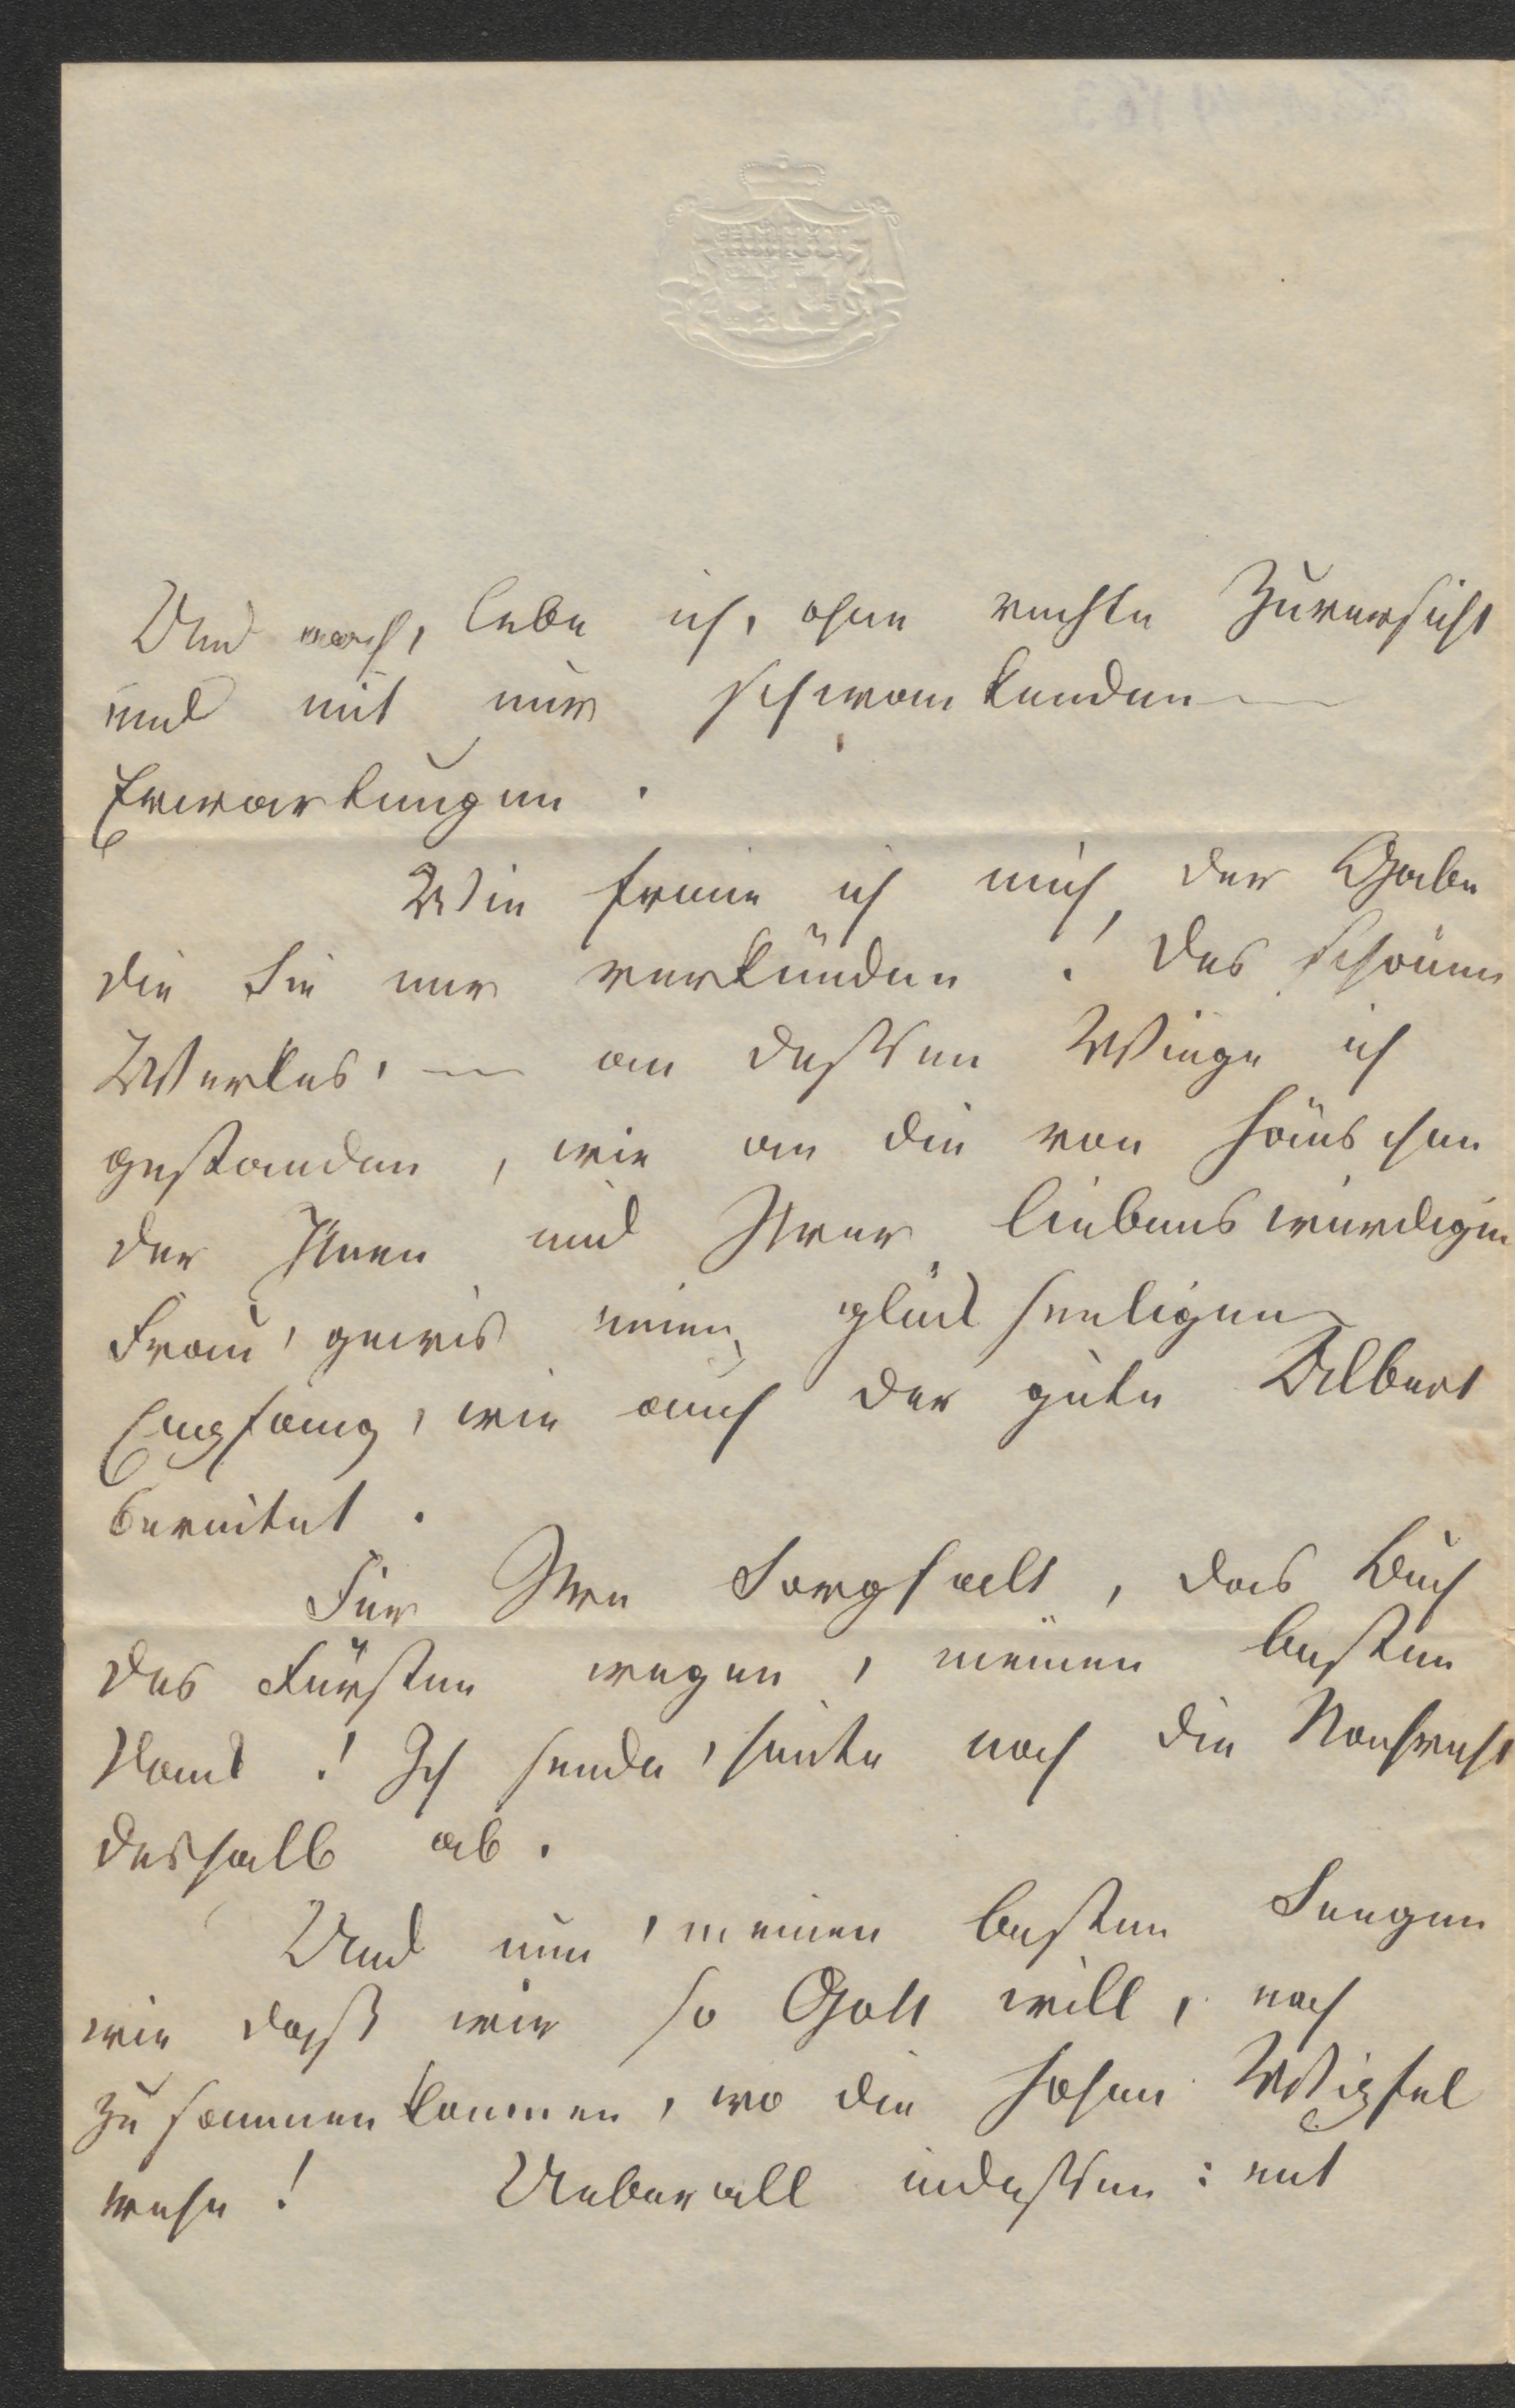 Und noch, lebe ich, ohne rechte Zuversicht
und mit nur schwankenden
Erwartungen.
Wie freue ich mich, der Gabe
die Sie mir verkünden! des schönen
Werkes, — an dessen Wiege ich
gestanden, wie an die von Hänschen
der Ihnen und Ihrer liebenswürdigen
Frau, gewis einen glückseeligen
Empfang, wie auch der gute Albert
bereitet.
Für Ihre Sorgfalt, das Buch
des Fürsten wegen, meinen besten
Dank! Ich sende, heute noch die
deshalb ab.
Und nun, meinen besten Seegen
wie daß wir so Gott will, noch
zusammenkommen, wo die hohen Wipfel
wehn! Ueberall indessen: mit